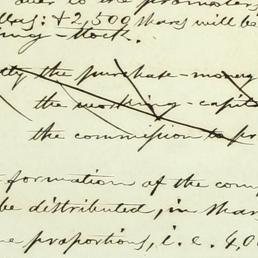 due to the promoters
&2,500 shares will be
ing-stock.
the purchase-money
the working-capit
the commission to pr
formation of the com
be distributed, in shar
e proportions, i.e. 4,0